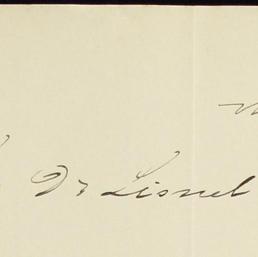 Dr Lionel